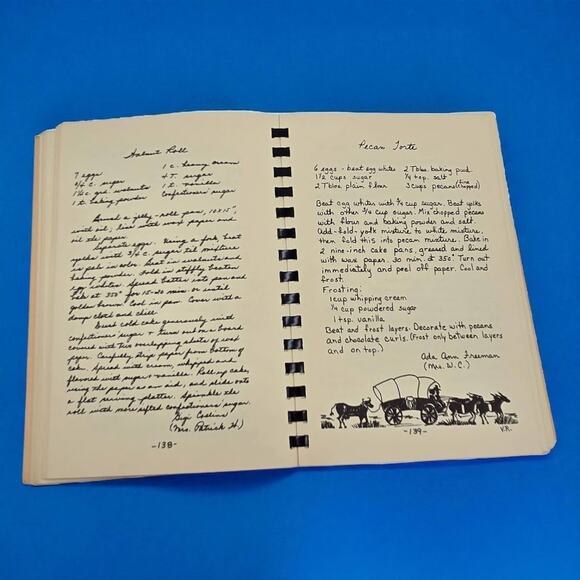 Walnut Roll
7 eggs
3/4 c. sugar
1 1/2 c. grd. walnuts
1 t. baking powder
1 c. heavy cream
4 T. sugar
1 t. vanilla
Confectioners' sugar
Brush a jelly-roll pan, 10 x 15",
with oil, line with wax paper and
oil the paper.
Separate eggs. Using a fork, beat
yolks with 3/4 c. sugar til mixture
is pale in color. Beat in walnuts and
baking powder. Fold in stiffly beaten
egg whites. Spread batter into pan and
bake at 350° for 15-20 min or until
golden brown. Cool in pan. Cover with a
damp cloth and chill.
Dust cold cake generously with
confectioners' sugar & turn out on a board
covered with two overlapping sheets of wax
paper. Carefully strip paper from bottom of
cake. Spread with cream, whipped and
flavored with sugar & vanilla. Roll up cake,
using the paper as an aid, and slide onto
a flat serving platter. Sprinkle the
roll with more sifted confectioners' sugar.
Gigi
(Mrs. Patrick H)
-138-
Pecan Torte
6 eggs - beat egg white
1 1/2 cups sugar
2 Tbls. plain flour
2 Tbls. baking powd.
1/4 tsp. salt
3 cups pecans (fine chopped)
Beat egg whites with 3/4 cup sugar. Beat yolks
with other 3/4 cup sugar. Mix chopped pecans
with flour and baking powder and salt.
Add-fold-yolk mixture to white mixture,
then fold this into pecan mixture. Bake in
2 nine-inch cake pans, greased and lined
with wax paper. 30 min. at 350° Turn out
immediately and peel off paper. Cool and
frost.
Frosting:
1 cup whipping cream
1/4 cup powdered sugar
1 tsp. vanilla
Beat and frost layers. Decorate with pecans
and chocolate curls. (Frost only between layers
and on top.)
Ada Ann Freeman
(Mrs. W.C.)
-139-
V.R.